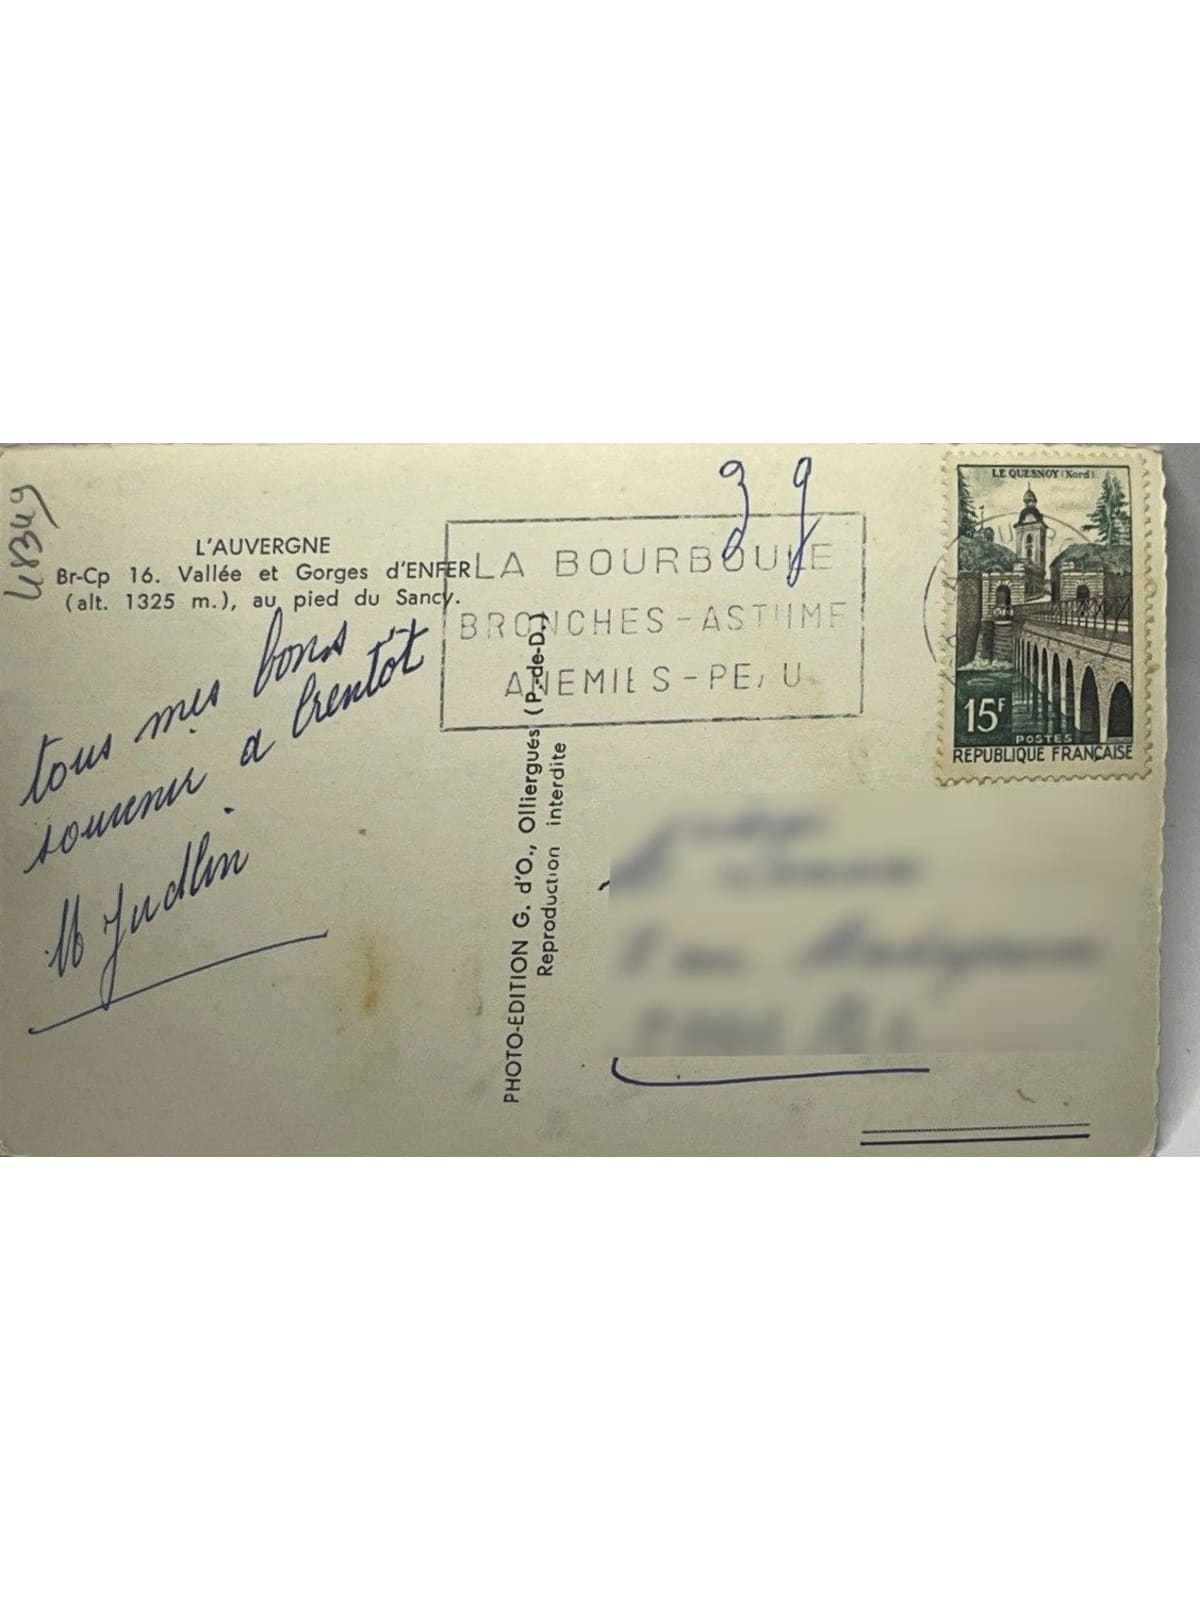 48349
L'AUVERGNE
Br-Cp 16. Vallée et Gorges d'ENFER
(alt. 1325 m.), au pied du Sancy.
tous mes bons
souvenir a brentôt
M Judlin
PHOTO-EDITION G. d'O., Olliergues (P.-de-D.)
Reproduction interdite
LA BOURBOULE
BRONCHES-ASTHME
ANEMIES-PEAU
LE QUESNOY (Nord)
15F
POSTES
REPUBLIQUE FRANÇAISE